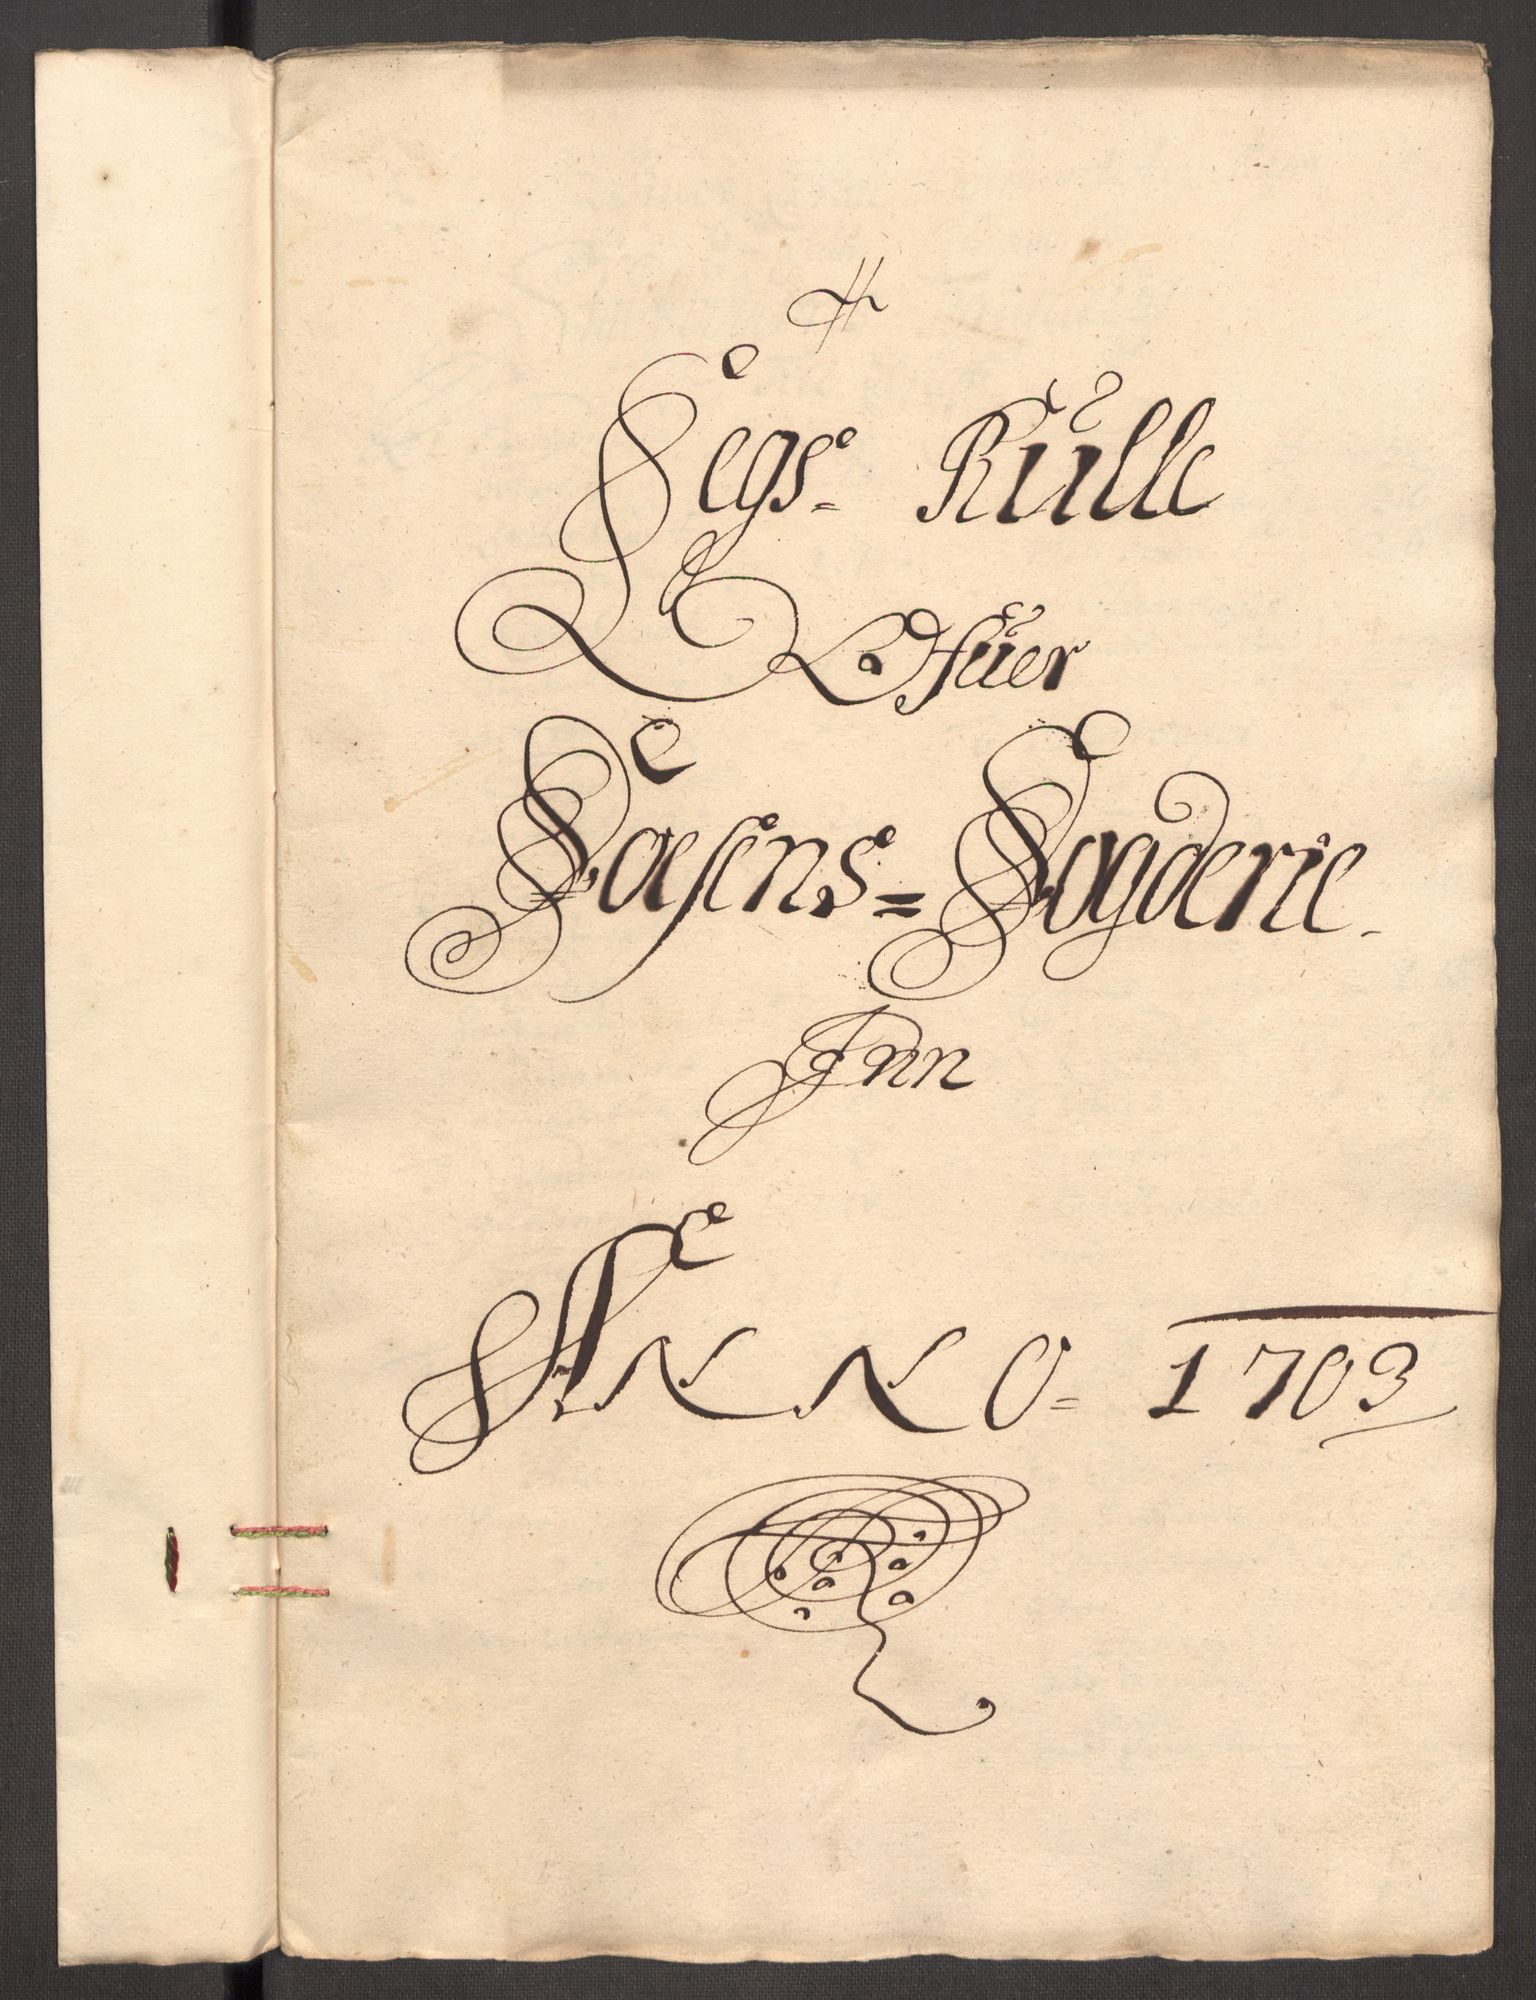 Legs= Rulle
Ofuer
Foesens= Fogderie.
Inn
ANNO= 1703